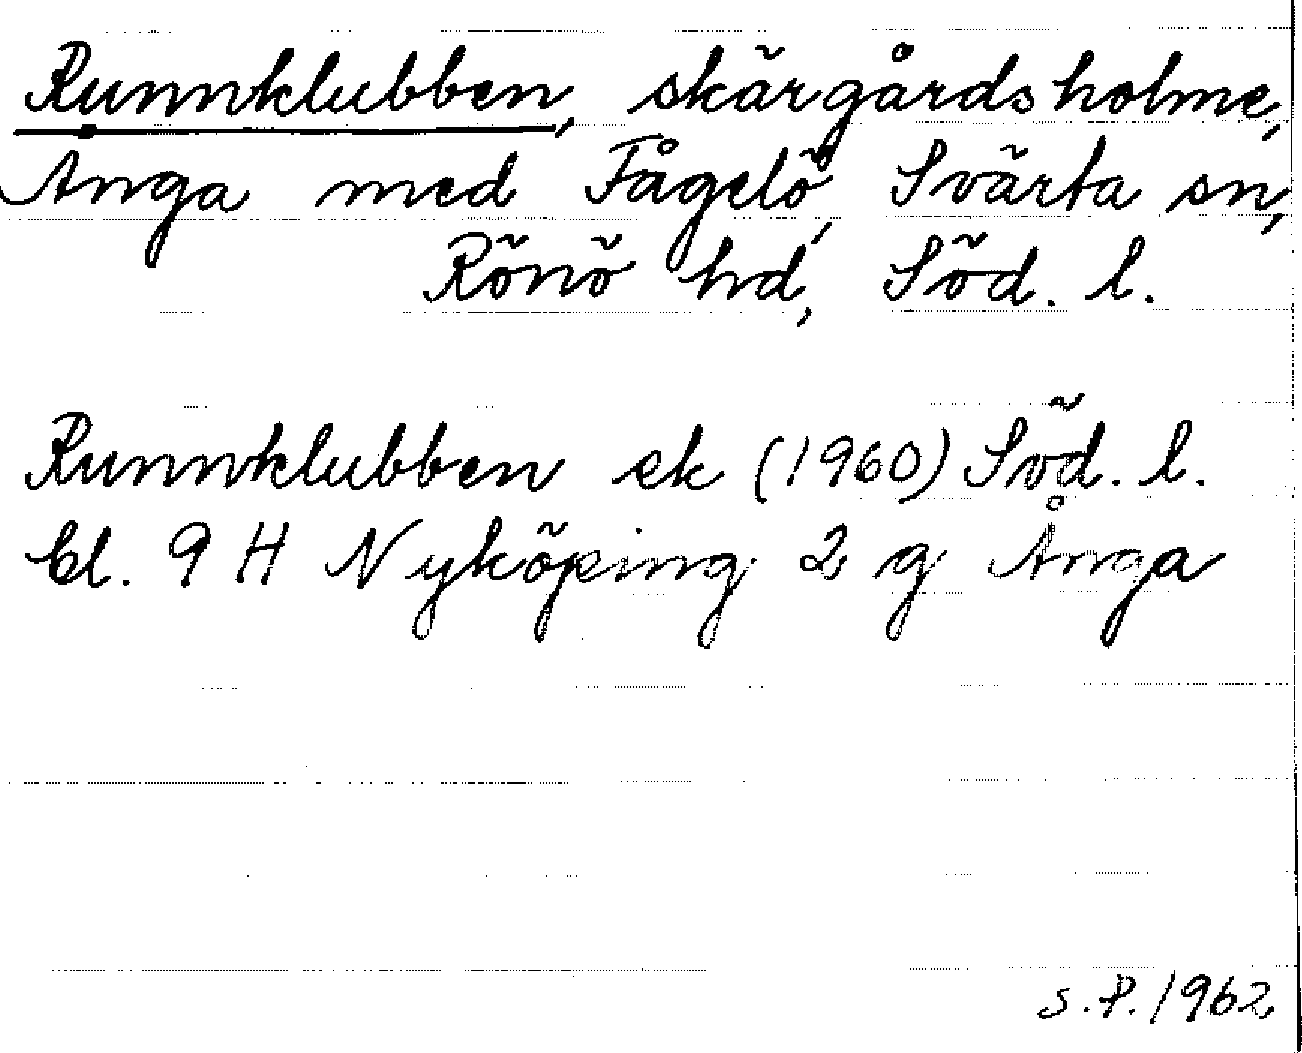 Runnklubben, skärgårdsholme,
Ånga med Fågelö, Svärta sn,
Rönö hd, Söd. l.
Runnklubben ek (1960) Söd. l.
bl. 9 H Nyköping 2 g Ånga
S.P. 1962